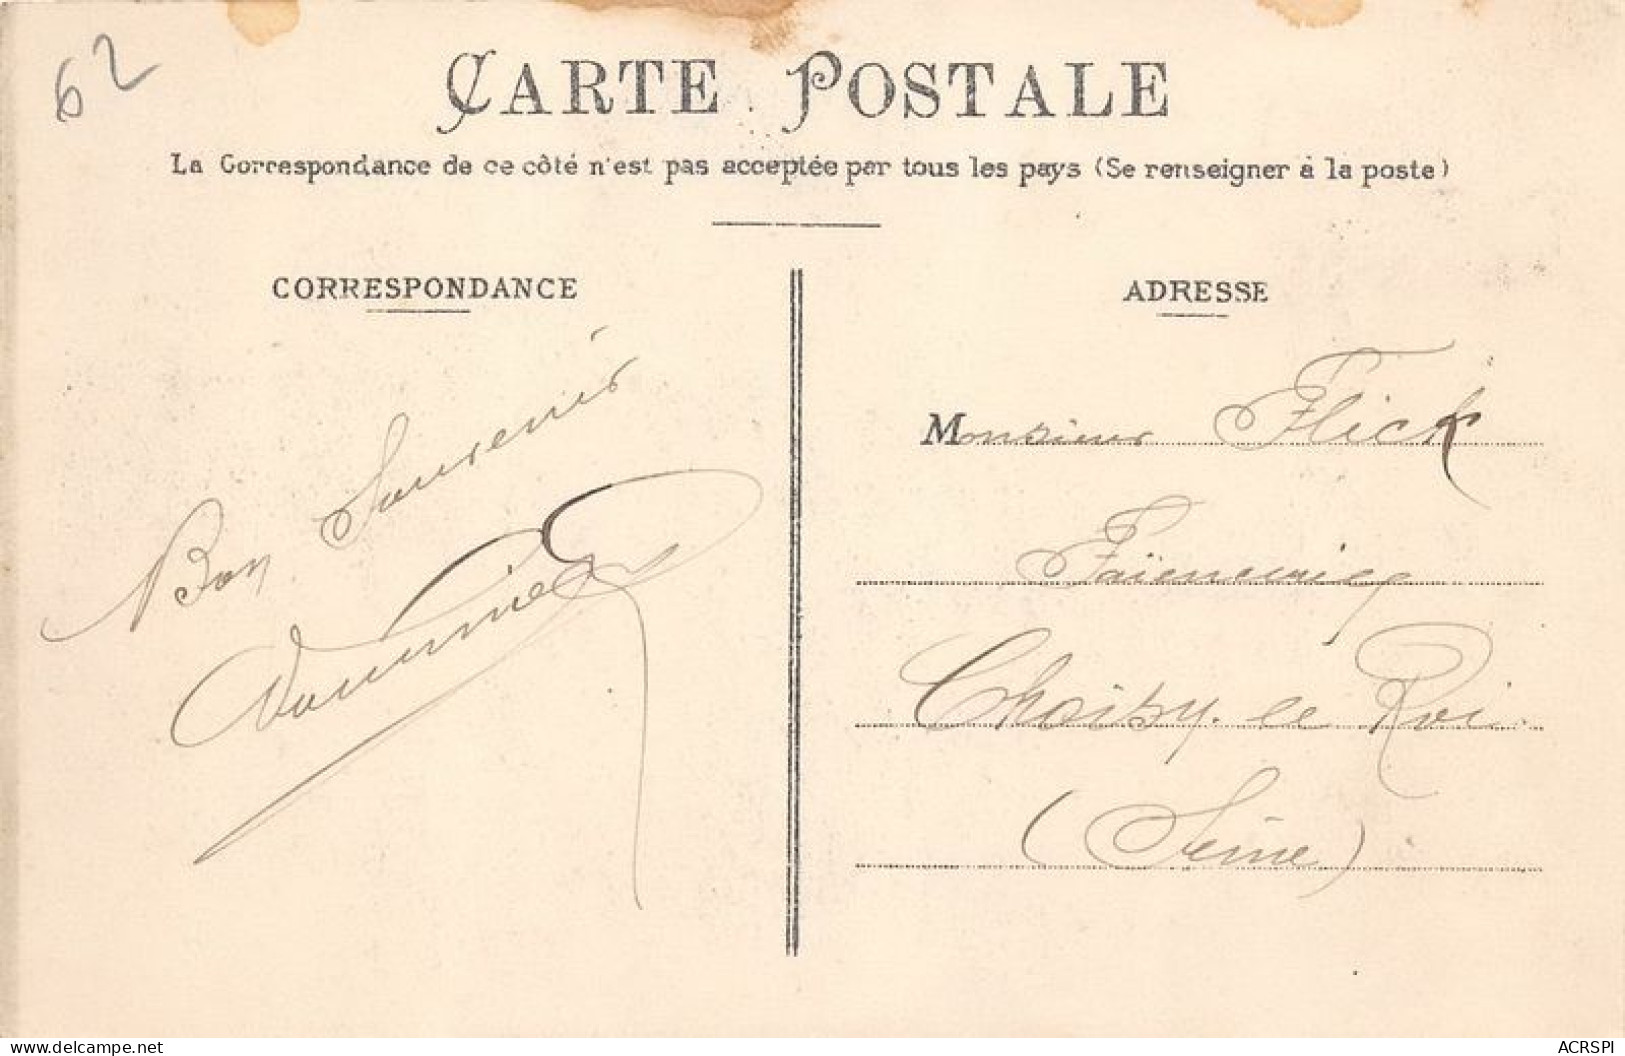 62
CARTE POSTALE
La Correspondance de ce côté n'est pas acceptée par tous les pays (Se renseigner à la poste)
CORRESPONDANCE
Bon Souvenir
ADRESSE
Monsieur Flick
Faïencerie
Choisy le Roi
(Seine)
www.delcampe.net
ACRSPI